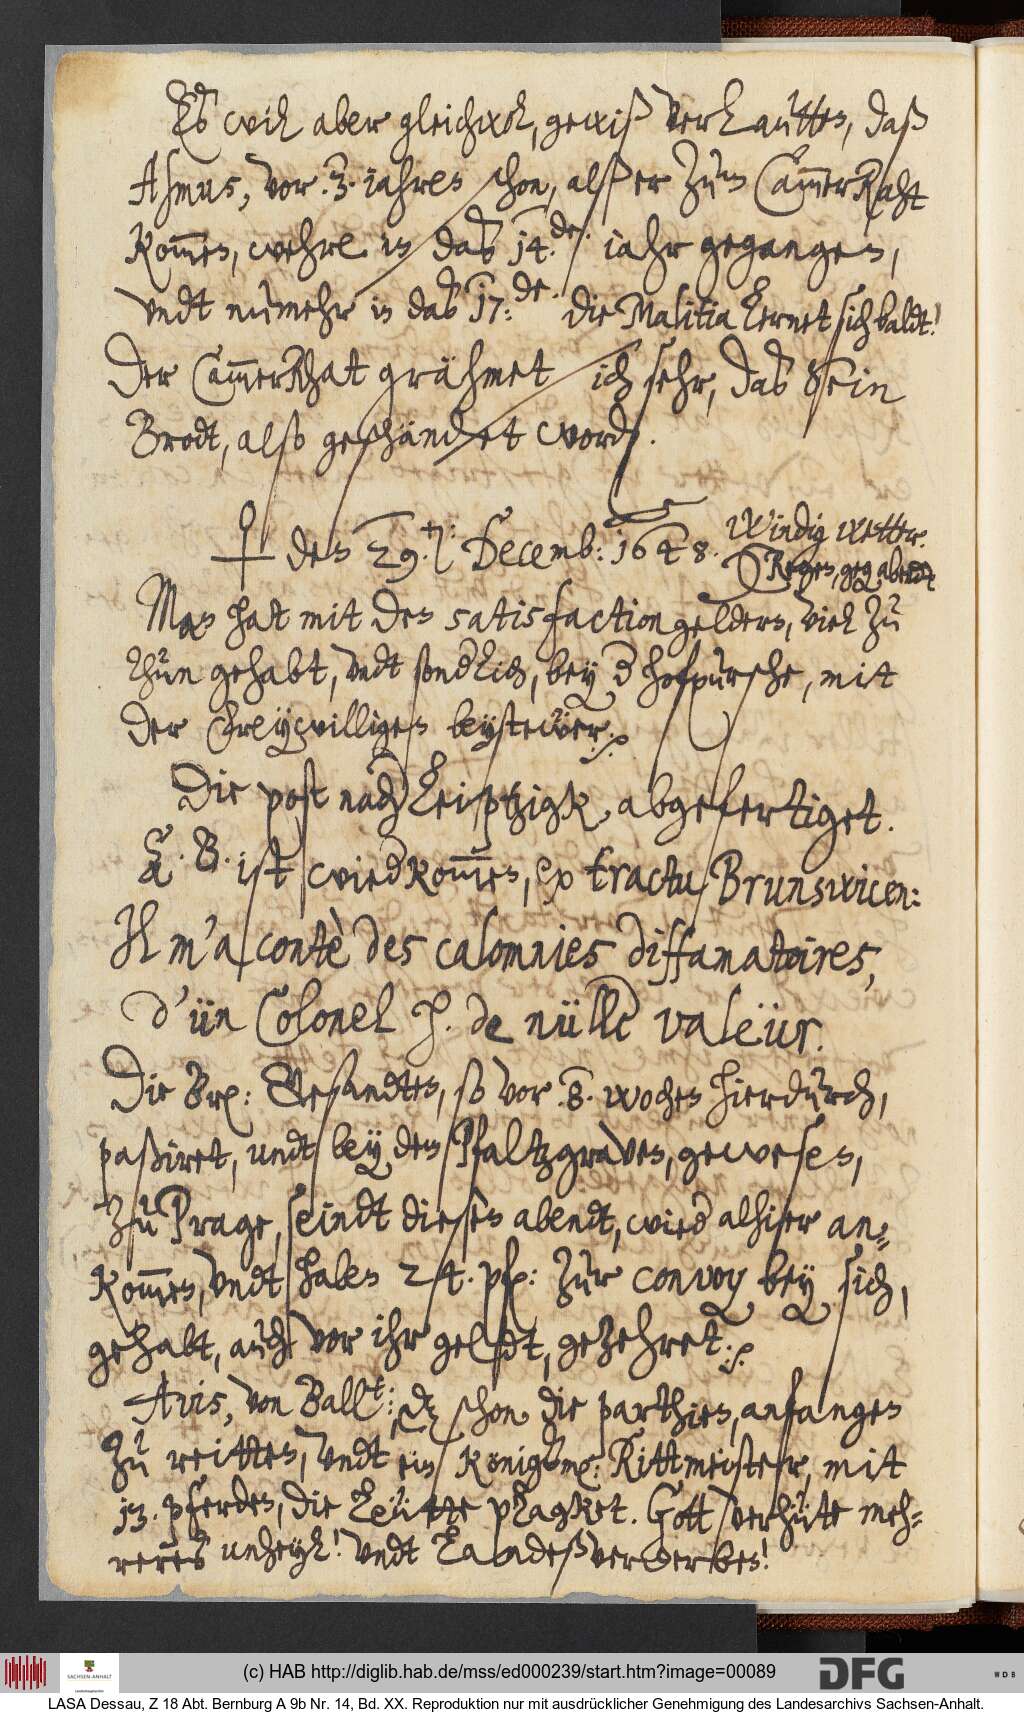 Es will aber gleichwol, gewiß verlautten, daß
Asmus, vor .3. iahren schon, alß er zum CammerRaht
kommen, wehre in das 14.de. iahr gegangen,
vndt nunmehr in das 17:de. die Malitia lernet sich baldt!
Der CammerRhat grähmet sich sehr, das Sein
Brodt, also geschändet worden.
♀ den 29. Decemb: 1648. Windig wetter.
Regen, geg. abendt
Man hat mit den satisfactiongeldern, viel zu
thun gehabt, vndt sonderlich, bey der hofpursche, mit
der freÿwilligen beÿstewer.
Die post nach Leiptzigk abgefertiget.
E. B. ist wiederkommen, ex tractu Brunswicen:
Il m'a contè des calomnies diffamatoires,
d'ün Colonel H. de nülle valeür.
Die Brem: Gesandten, so vor .8. wochen hierdurch,
paßiret, undt beÿ dem Pfaltzgraven, gewesen,
zu Prage, seindt diesen abendt, wieder alhier an-
kommen, vndt haben 24. pferde: zur convoy beÿ sich,
gehabt, auch vor ihr geldt, gezehret.
Avis, von Ballenstedt: daß schon die parthien, anfangen
zu reitten, vndt ein Königsmarkischer: Rittmeister, mit
13. pferden, die Leütte plagket. Gott verhüte meh-
reres unheyl! vndt Landeßverderben!
(c) HAB http://diglib.hab.de/mss/ed000239/start.htm?image=00089
SACHSEN-ANHALT
DFG
WDB
LASA Dessau, Z 18 Abt. Bernburg A 9b Nr. 14, Bd. XX. Reproduktion nur mit ausdrücklicher Genehmigung des Landesarchivs Sachsen-Anhalt.